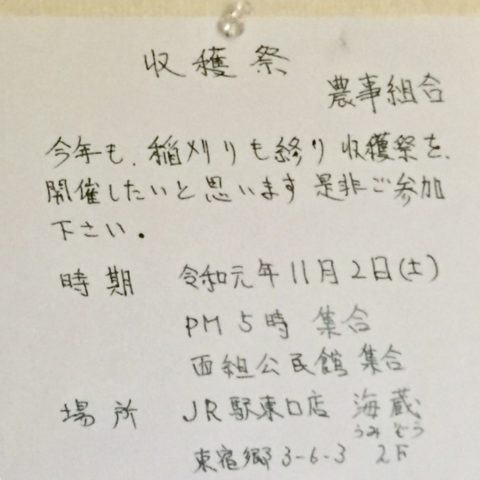 収穫祭
農事組合
今年も、稲刈りも終り収穫祭を、
開催したいと思います是非ご参加
下さい。
時期 令和元年11月2日(土)
PM5時 集合
西組公民館 集合
場所 JR駅東口店 海蔵
うみぞう
東宿郷3-6-3 2F